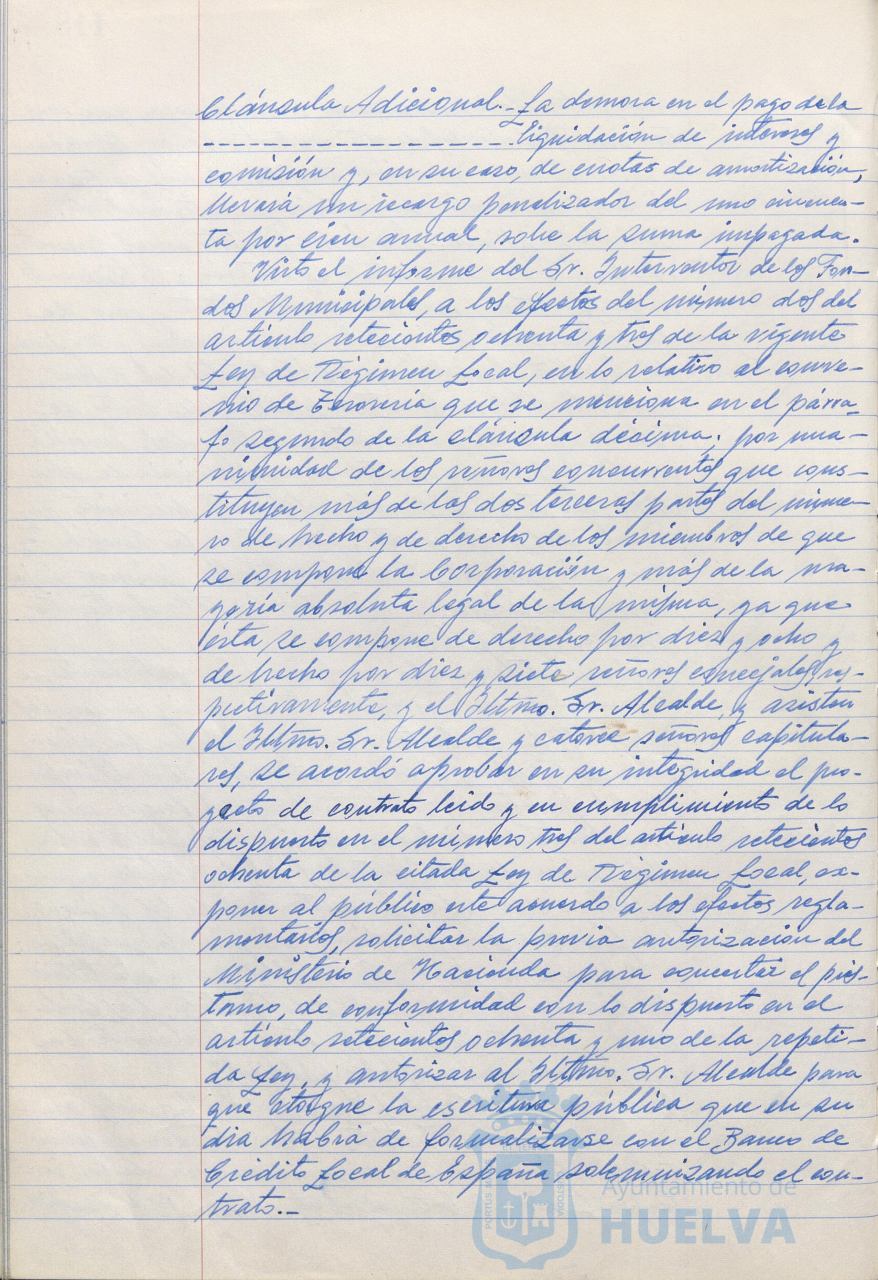 Cláusula Adicional.- La demora en el pago de la
- - - - - - - - - - - - - - - - - - liquidación de intereses y
comisión y, en su caso, de cuotas de amortización,
llevará un recargo penalizador del uno cincuen-
ta por cien anual, sobre la suma impagada.
Visto el informe del Sr. Interventor de los Fon-
dos Municipales, a los efectos del número dos del
artículo setecientos ochenta y tres de la vigente
Ley de Régimen Local, en lo relativo al conve-
nio de Tesorería que se menciona en el párra-
fo segundo de la cláusula décima; por una-
nimidad de los señores concurrentes que cons-
tituyen más de las dos terceras partes del núme-
ro de hecho y de derecho de los miembros de que
se compone la Corporación y más de la ma-
yoría absoluta legal de la misma, ya que
ésta se compone de derecho por diez y ocho y
de hecho por diez y siete señores concejales, res-
pectivamente, y el Iltmo. Sr. Alcalde, y asisten
el Iltmo. Sr. Alcalde y catorce señores capitula-
res, se acordó aprobar en su integridad el pro-
yecto de contrato leído y en cumplimiento de lo
dispuesto en el número tres del artículo setecientos
ochenta de la citada Ley de Régimen Local, ex-
poner al público este acuerdo a los efectos regla-
mentarios, solicitar la previa autorización del
Ministerio de Hacienda para concertar el prés-
tamo, de conformidad con lo dispuesto en el
artículo setecientos ochenta y uno de la repeti-
da Ley, y autorizar al Iltmo. Sr. Alcalde para
que otorgue la escritura pública que en su
día habrá de formalizarse con el Banco de
Crédito Local de España, solemnizando el con-
trato.-
Ayuntamiento de
HUELVA